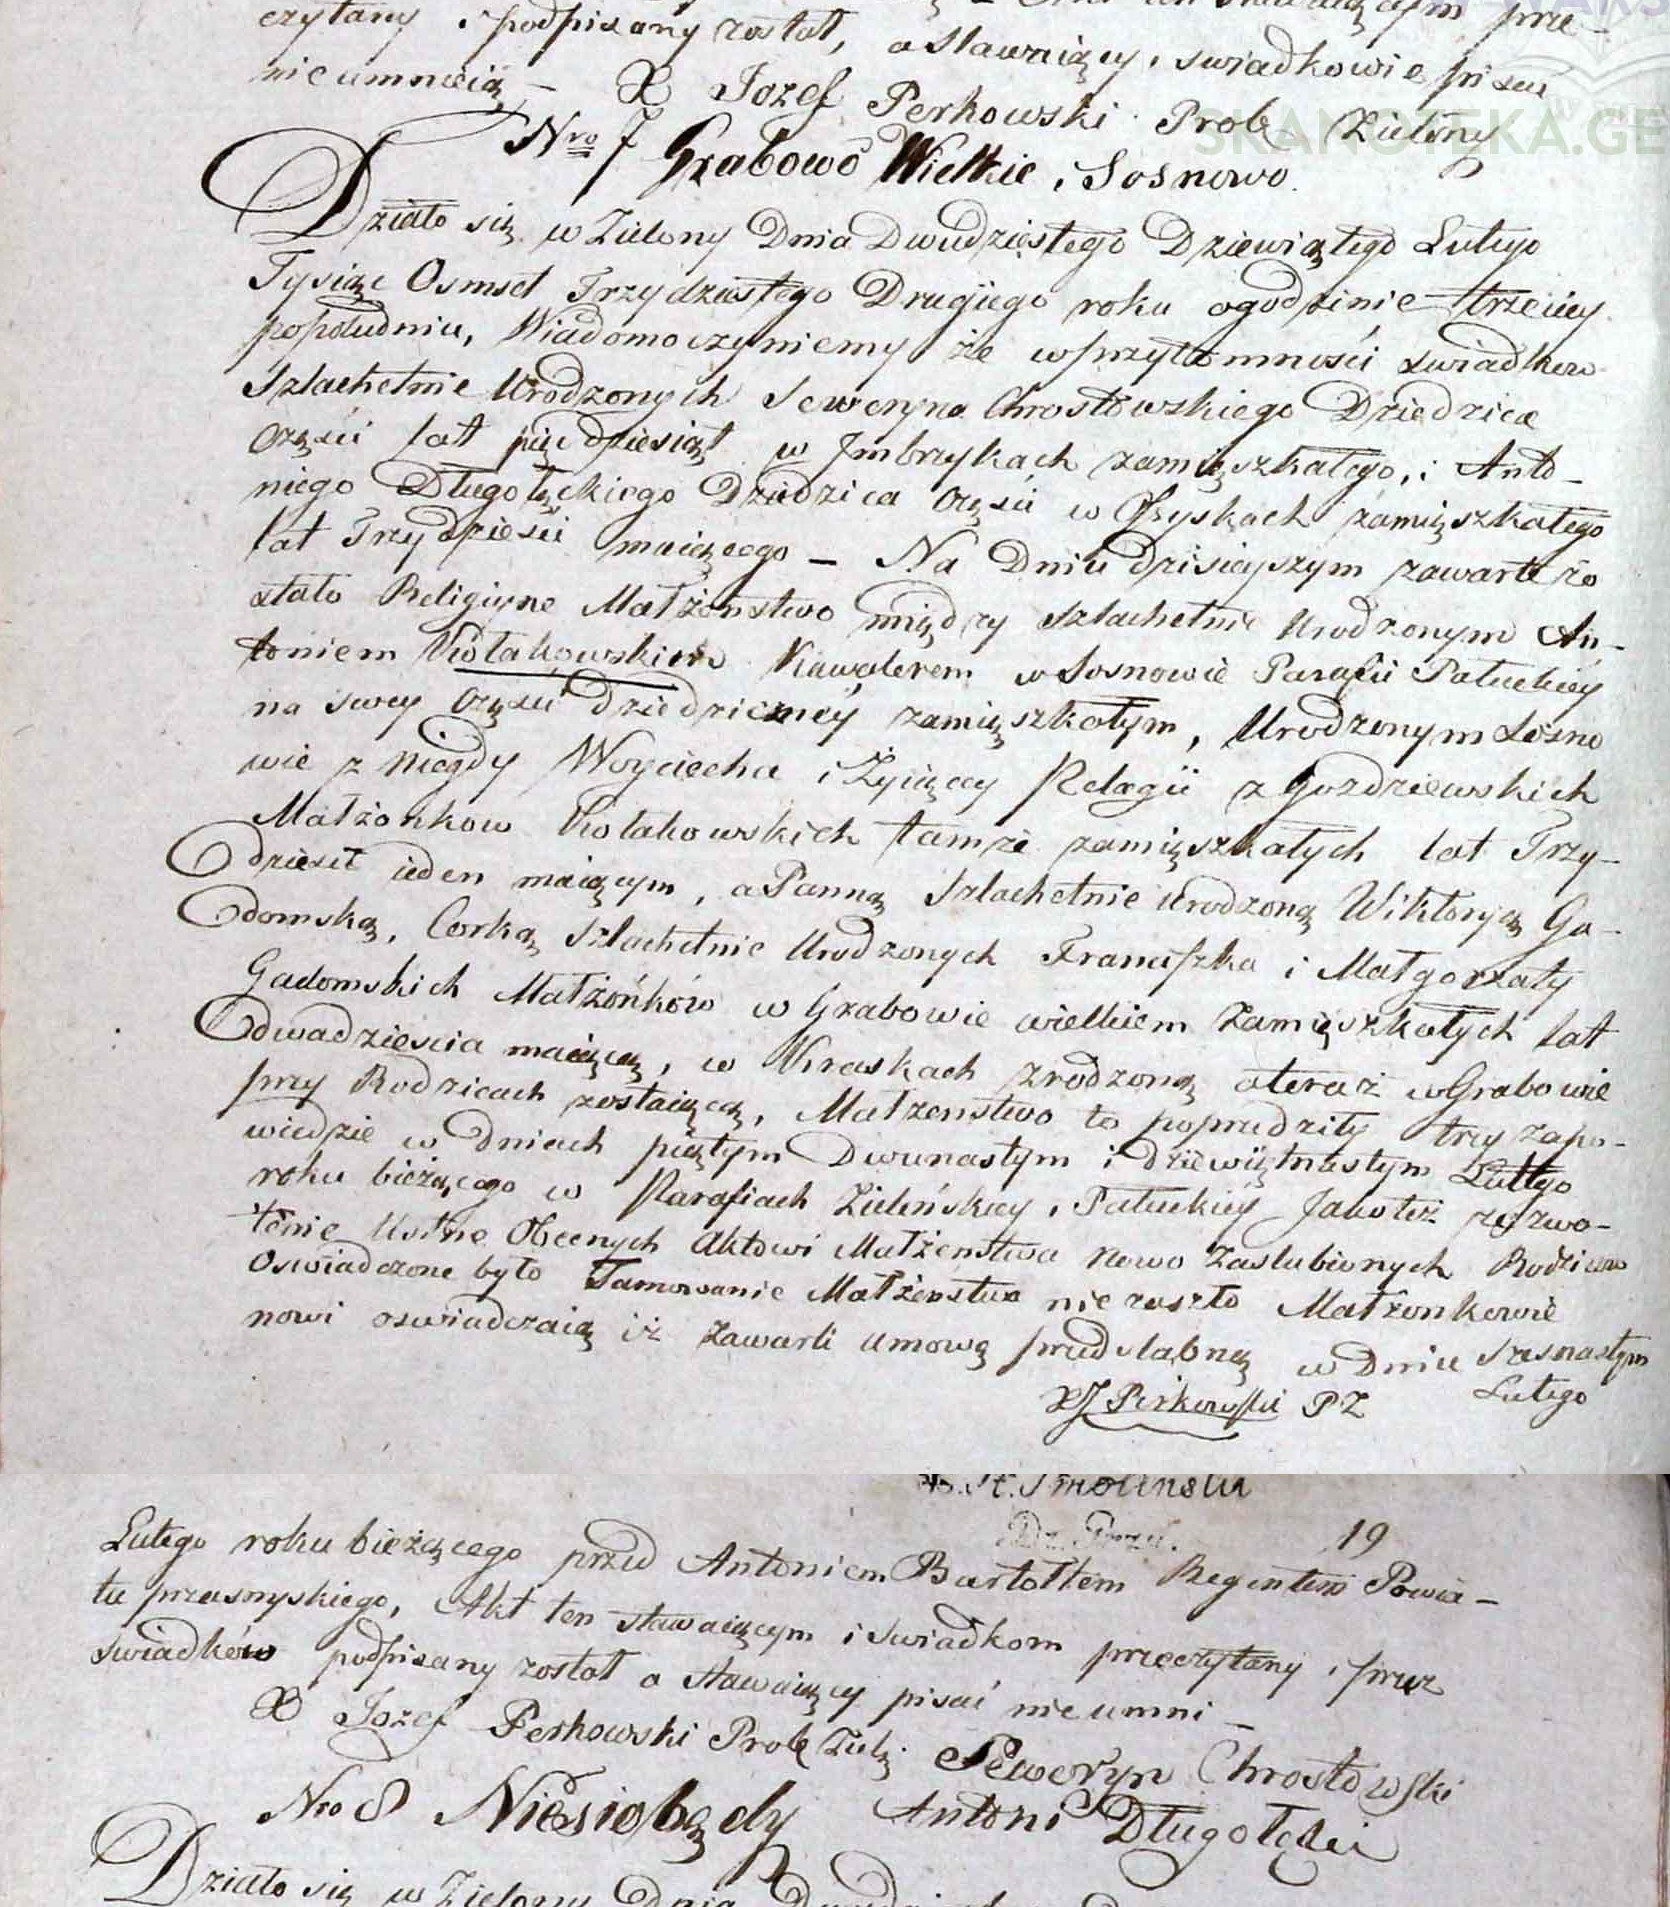 czytany i podpisany został, a Stawaiący i swiadkowie pisac
nieumnieią – X Jozef Perkowski Prob Zieliny
SKANOTEKA.GE
Nro 7 Grabowo Wielkie i Sosnowo.
Działo się w Zielony Dnia Dwudziestego Dziewiątego Lutego
Tysiąc Osmset Trzydziestego Drugiego roku ogodzinie trzeciey
popołudniu, Wiadomo czyniemy że wprzytomności swiadkow
Szlachetnie Urodzonych Seweryna Chrostowskiego Dziedzica
Części lat pięcdziesiąt w Jmbrzykach zamięszkałego, i Anto-
niego Długołęckiego Dziedzica Części w Gryskach zamięszkałego
lat Trzydzieści maiącego – Na Dniu dzisieyszym zawarte zo
stało Religiyne Małżeństwo między Szlachetnie Urodzonym An-
toniem Kołakowskiem Kawalerem w Sosnowie Parafii Pałuckiey
na swey Części dziedziczney zamięszkałym, Urodzonym Sosno
wie z niegdy Woyciecha i Żyiącey Pelagii z Gozdziewskich
Małżonkow Kołakowskich tamże zamięszkałych lat Trzy-
dzieści ieden maiącym, a Panną Szlachetnie urodzoną Wiktoryą Ga-
domską, Corką Szlachetnie Urodzonych Franciszka i Małgorzaty
Gadomskich Małżonków w Grabowie wielkiem Zamięszkałych lat
dwadzieścia maiącą, w Kraskach zrodzoną a teraz w Grabowie
przy Rodzicach zostaiącą, Małzenstwo to poprzedziły trzy zapo-
wiedzie w dniach piątym Dwunastym i dziewiętnastym Lutego
roku bieżącego w Parafiach Zielińskiey i Pałuckiey Jakoteż zezwo-
lenie Ustne Obecnych Aktowi Małżenstwa Nowo Zaslubionych Rodzicow
Oswiadczone było Tamowanie Małżenstwa nie zaszło Małżonkowie
nowi oswiadczaią iż Zawarli umowę przedslubną w Dniu szesnastym
XJ Perkowski PZ Lutego
St. Smolinski
19
Lutego roku bieżącego przed Antoniem Bartołtem Regentem Powia-
tu przasnyskiego, Akt ten stawaiącym i swiadkom przeczytany i przez
swiadków podpisany został a stawaiący pisać nieumni –
X Jozef Perkowski Prob Zielz. Seweryn Chrostowski
Nro 8 Niesiobędy Antoni Długołęcki
Działo się w Zielony Dnia